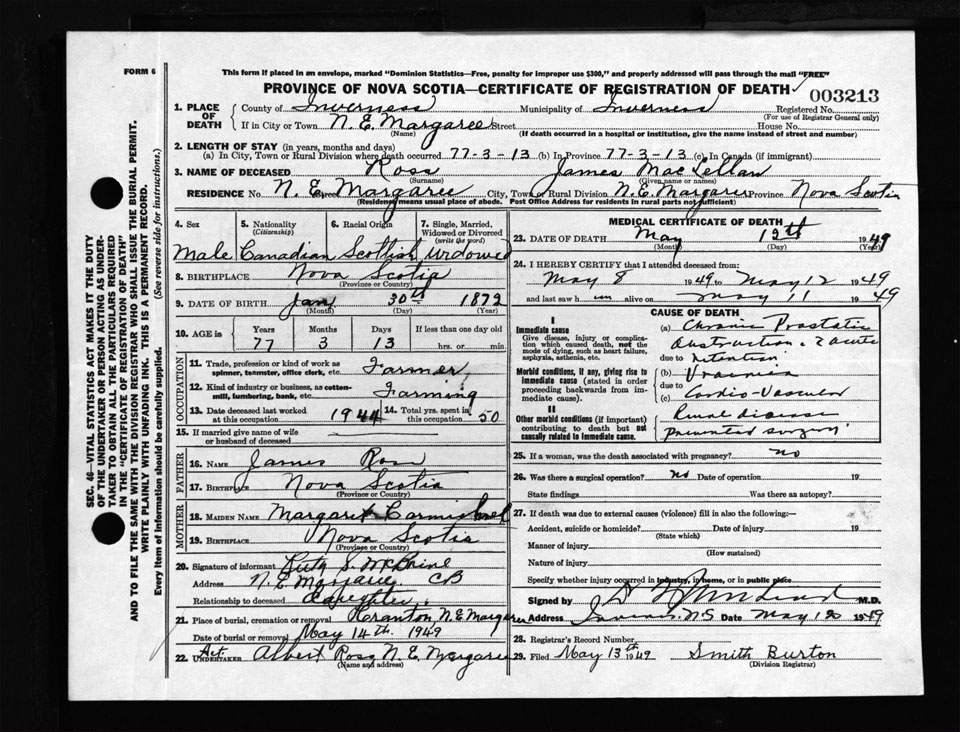 FORM 6
This form if placed in an envelope, marked "Dominion Statistics—Free, penalty for improper use $300," and properly addressed will pass through the mail "FREE"
PROVINCE OF NOVA SCOTIA—CERTIFICATE OF REGISTRATION OF DEATH ✓ 003213
1. PLACE OF DEATH County of Inverness Municipality of Inverness Registered No.
(For use of Registrar General only)
If in City or Town N. E. Margaree Street House No.
(Name) (If death occurred in a hospital or institution, give the name instead of street and number)
2. LENGTH OF STAY (in years, months and days)
(a) In City, Town or Rural Division where death occurred 77-3-13 (b) In Province 77-3-13 (c) In Canada (if immigrant)
3. NAME OF DECEASED Ross James MacLellan
(Surname) (Given name or names)
RESIDENCE No. N. E. Margaree Street City, Town or Rural Division N. E. Margaree Province Nova Scotia
(Residence means usual place of abode. Post Office Address for residents in rural parts not sufficient)
4. Sex 5. Nationality (Citizenship) 6. Racial Origin 7. Single, Married, Widowed or Divorced (write the word)
Male Canadian Scottish widowed
8. BIRTHPLACE Nova Scotia
(Province or Country)
9. DATE OF BIRTH Jan 30th 1872
(Month) (Day) (Year)
10. AGE in Years Months Days If less than one day old
77 3 13 hrs. or min.
OCCUPATION
11. Trade, profession or kind of work as spinner, teamster, office clerk, etc. Farmer
12. Kind of industry or business, as cotton-mill, lumbering, bank, etc. Farming
13. Date deceased last worked at this occupation 1944 14. Total yrs. spent in this occupation 50
15. If married give name of wife or husband of deceased
FATHER
16. NAME James Ross
17. BIRTHPLACE Nova Scotia
(Province or Country)
MOTHER
18. MAIDEN NAME Margaret Carmichael
19. BIRTHPLACE Nova Scotia
(Province or Country)
20. Signature of informant S.
Address N. E. Margaree CB
Relationship to deceased Daughter
21. Place of burial, cremation or removal N. E. Margaree
Date of burial or removal May 14th. 1949
22. Act. UNDERTAKER Albert Ross N. E. Margaree
(Name and address)
MEDICAL CERTIFICATE OF DEATH
23. DATE OF DEATH May 12th 1949
(Month) (Day) (Year)
24. I HEREBY CERTIFY that I attended deceased from:
May 8 1949 to May 12 1949
and last saw h im alive on May 11 1949
CAUSE OF DEATH
I
Immediate cause
Give disease, injury or complication which caused death, not the mode of dying, such as heart failure, asphyxia, asthenia, etc.
(a) Chronic Prostatic
Obstruction & acute
due to retention
Morbid conditions, if any, giving rise to immediate cause (stated in order proceeding backwards from immediate cause).
(b) Uraemia
due to
(c) Cardio-Vascular
II
Other morbid conditions (if important) contributing to death but not causally related to immediate cause.
Renal disease
prevented surgery
25. If a woman, was the death associated with pregnancy? no
26. Was there a surgical operation? no Date of operation 19
State findings Was there an autopsy?
27. If death was due to external causes (violence) fill in also the following:—
Accident, suicide or homicide? Date of injury 19
(State which)
Manner of injury
(How sustained)
Nature of injury
Specify whether injury occurred in industry, in home, or in public place
Signed by M.D.
Address Inverness N.S. Date May 12 1949
28. Registrar's Record Number
29. Filed May 13th 1949 Smith Burton
(Division Registrar)
SEC. 46—VITAL STATISTICS ACT MAKES IT THE DUTY
OF THE UNDERTAKER OR PERSON ACTING AS UNDER-
TAKER TO OBTAIN ALL THE PARTICULARS REQUIRED
IN THE "CERTIFICATE OF REGISTRATION OF DEATH"
AND TO FILE THE SAME WITH THE DIVISION REGISTRAR WHO SHALL ISSUE THE BURIAL PERMIT.
WRITE PLAINLY WITH UNFADING INK. THIS IS A PERMANENT RECORD.
Every item of information should be carefully supplied. (See reverse side for instructions.)